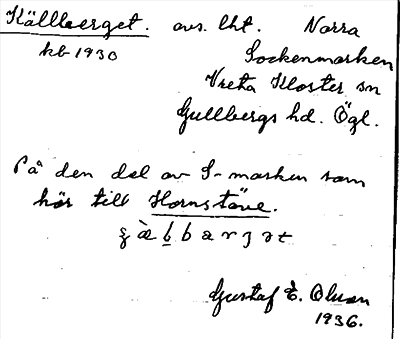 Källberget. avs. lht. Norra
kb 1930 Sockenmarken
Vreta Kloster sn
Gullbergs hd. Ögl.
På den del av S-marken som
hör till Hornstäve.
Gustaf E. Olson
1936.